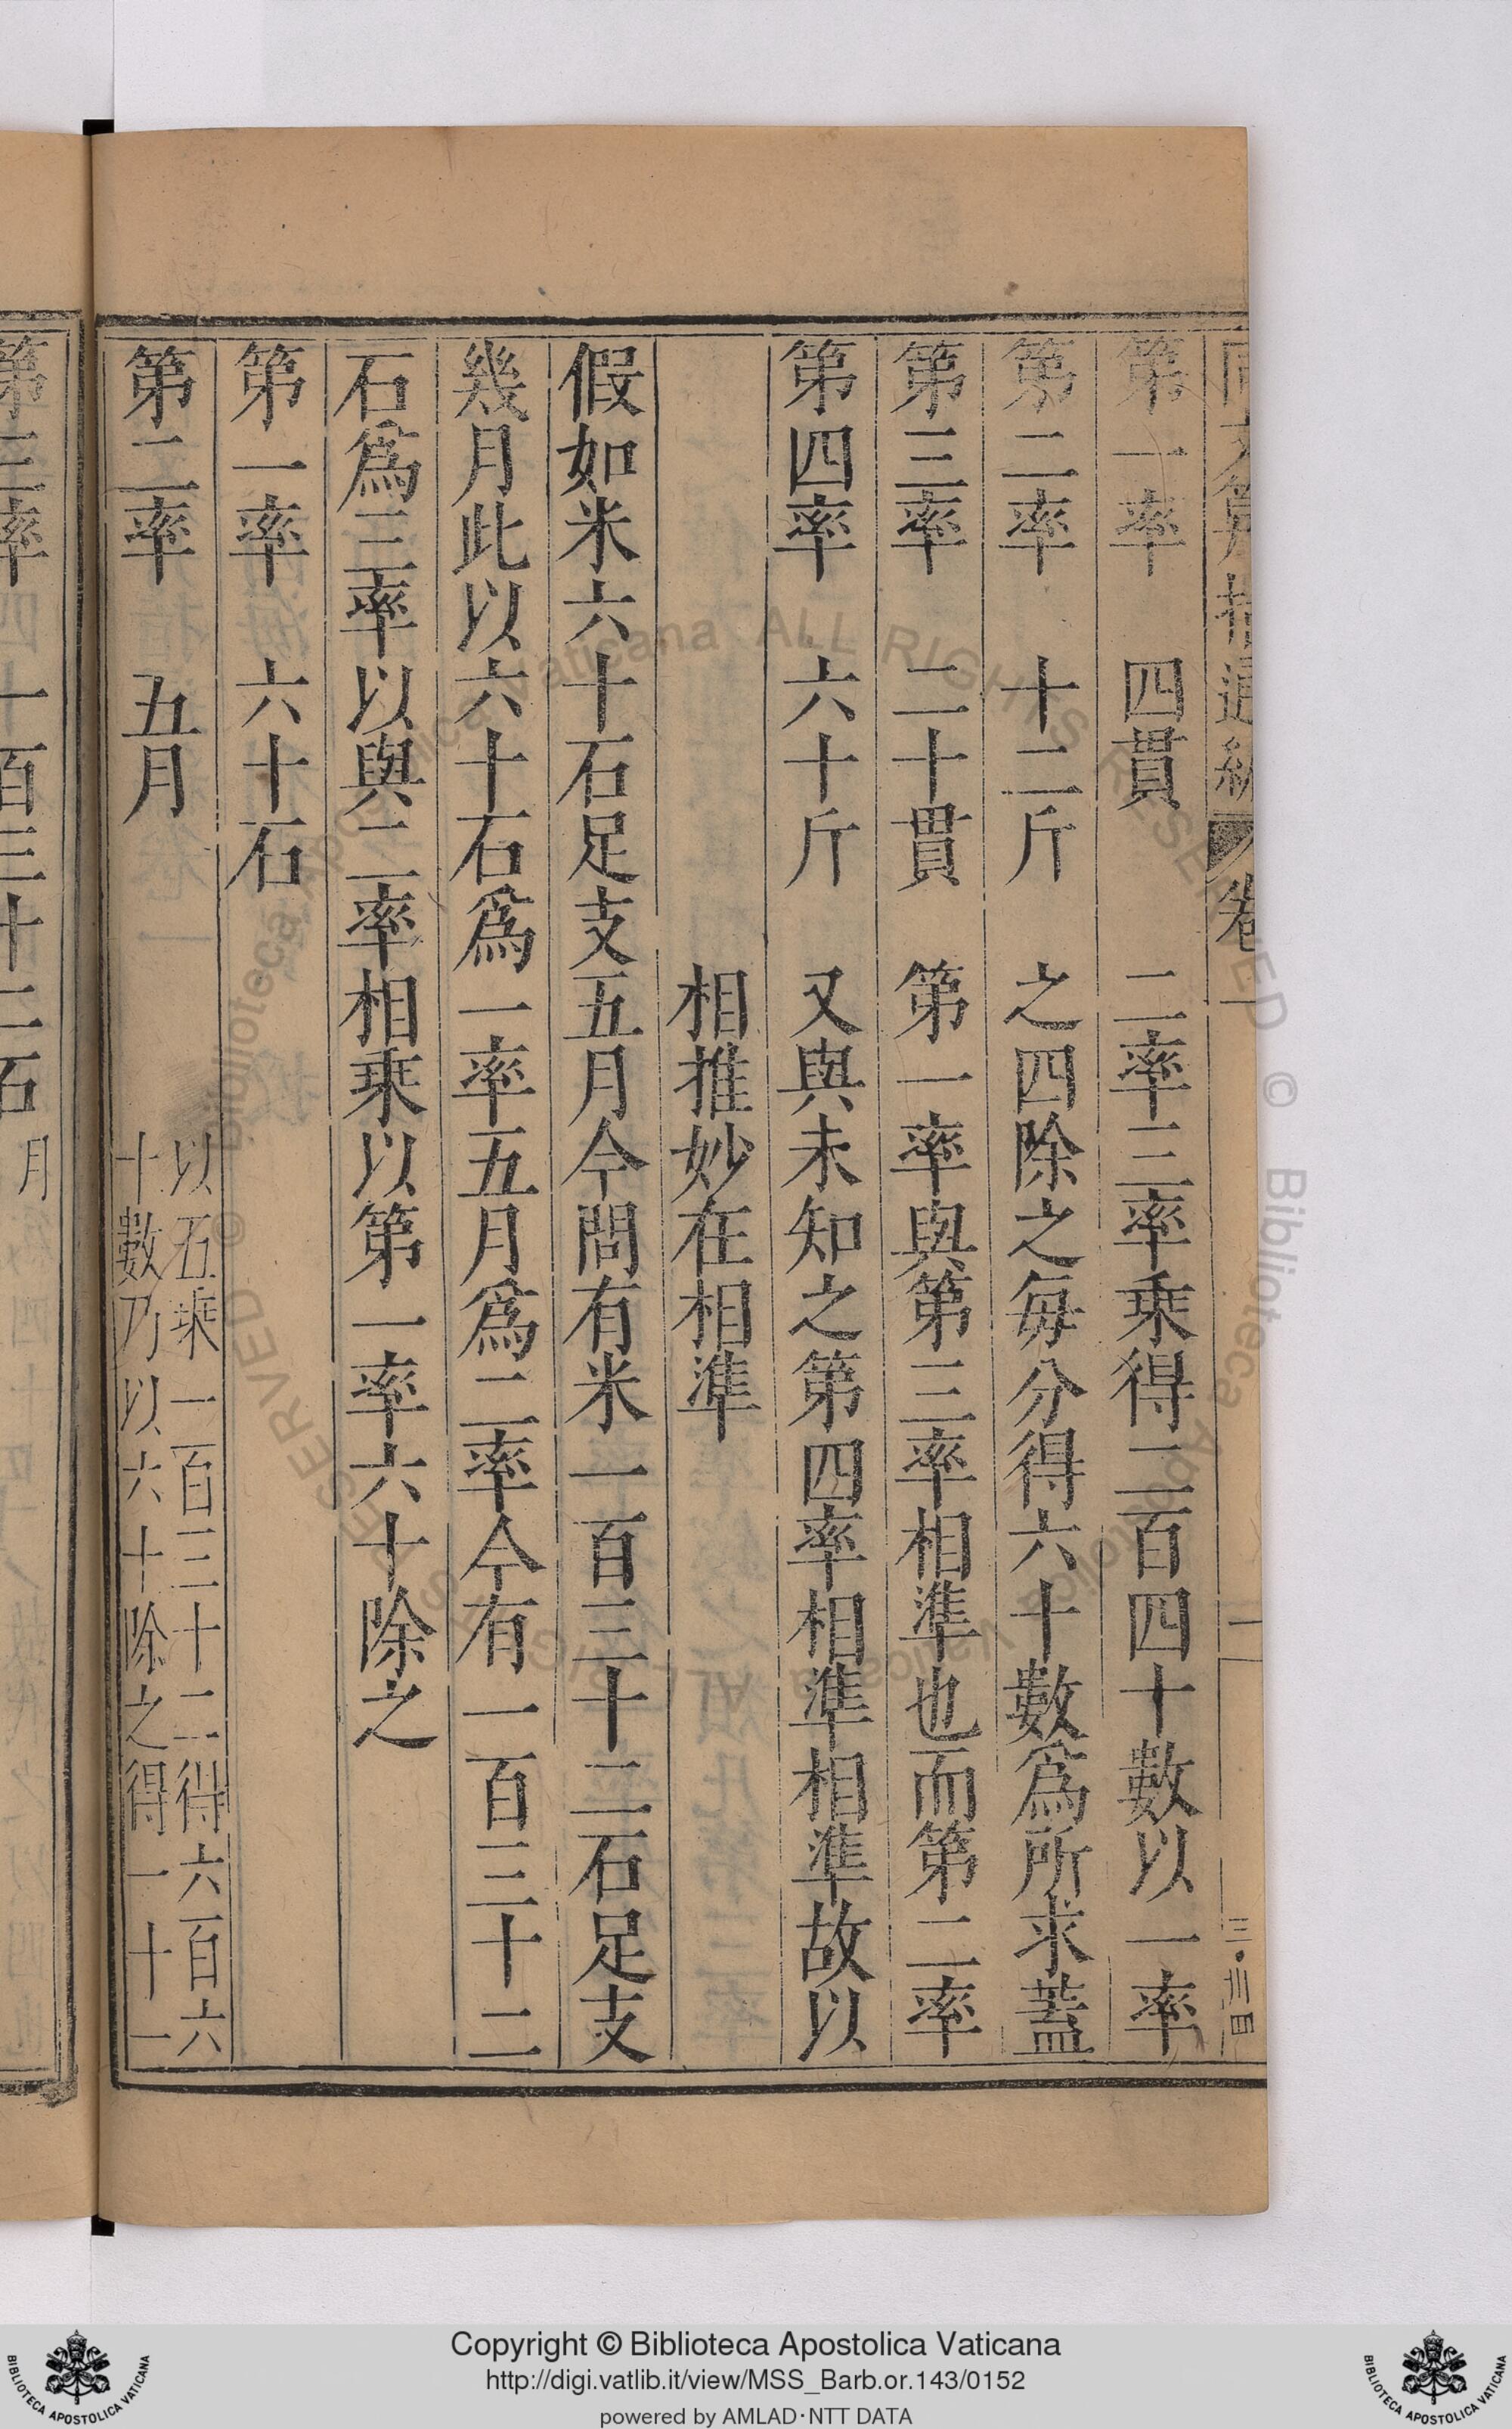 同文算指通編 卷一
第一率 四貫 二率三率乘得二百四十數以一率
第二率 十二斤 之四除之每分得六十數爲所求蓋
第三率 二十貫 第一率與第三率相準也而第二率
第四率 六十斤 又與未知之第四率相準相準故以
相推妙在相準
假如米六十石足支五月今問有米一百三十二石足支
幾月此以六十石爲一率五月爲二率今有一百三十二
石爲三率以與二率相乘以第一率六十除之
第一率 六十石
第二率 五月 以五乘一百三十二得六百六
十數乃以六十除之得一十一
月
第三率 一百三十二石
Copyright © Biblioteca Apostolica Vaticana
http://digi.vatlib.it/view/MSS_Barb.or.143/0152
powered by AMLAD·NTT DATA
BIBLIOTECA APOSTOLICA VATICANA
BIBLIOTECA APOSTOLICA VATICANA